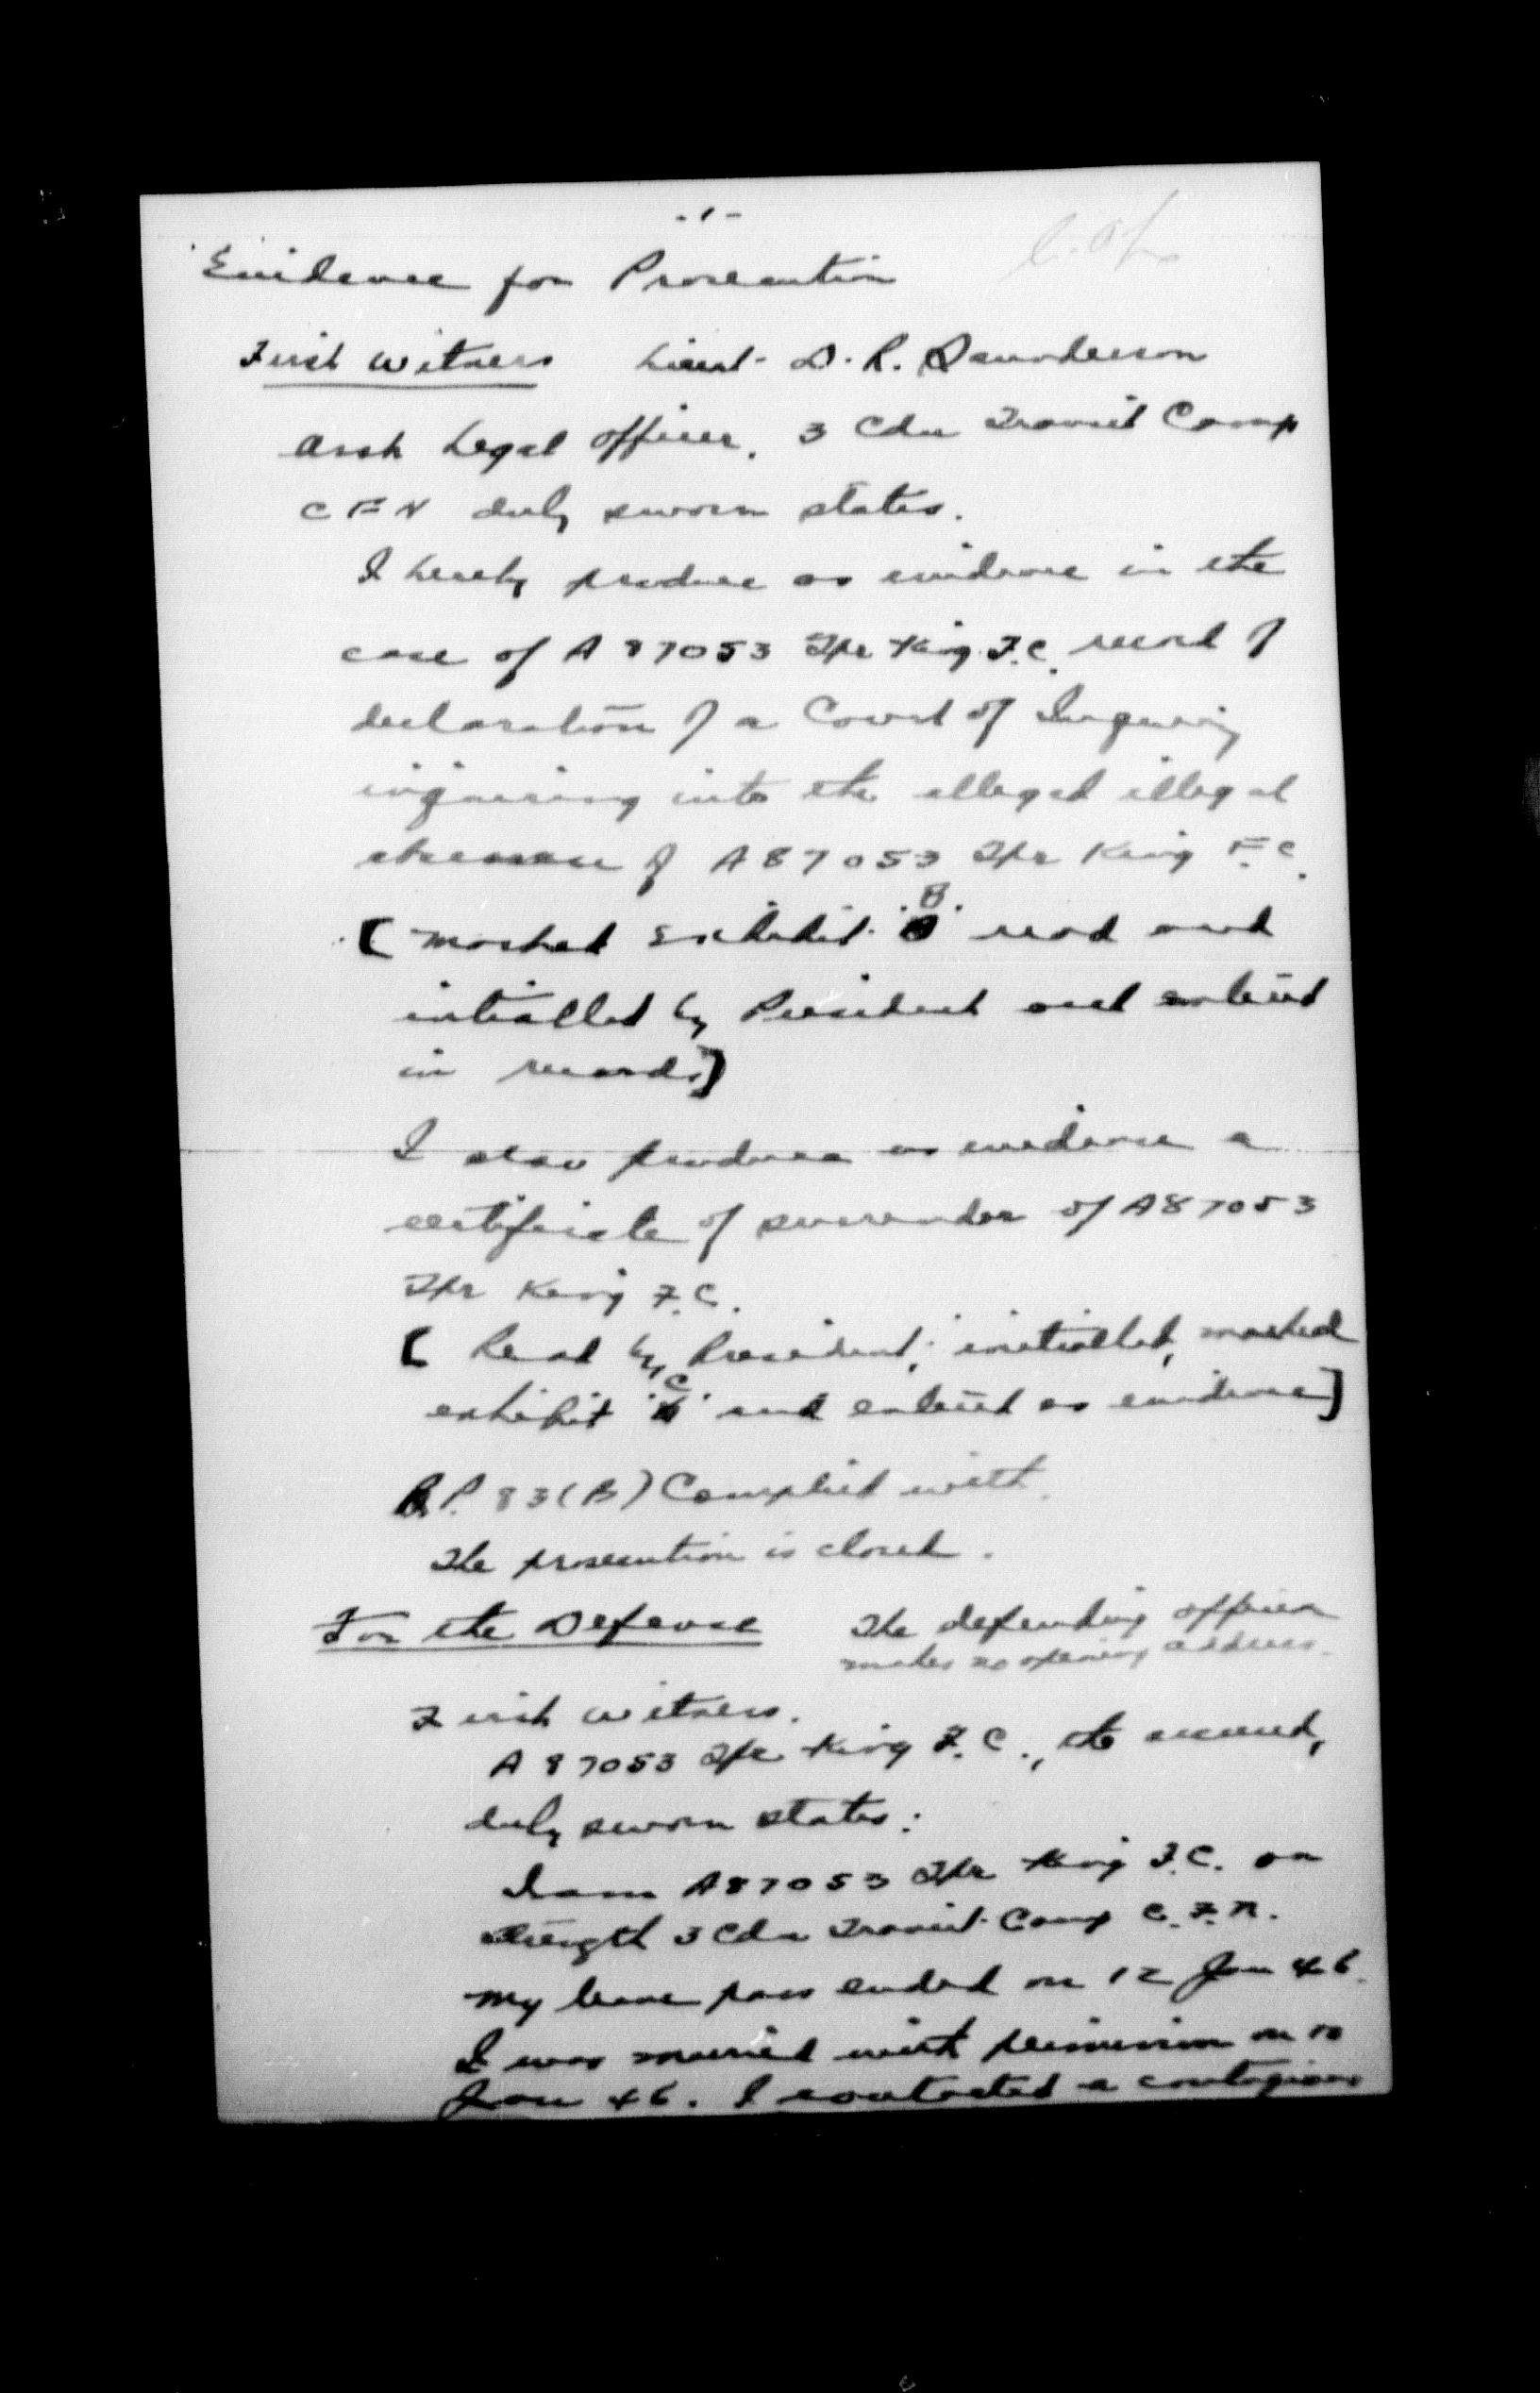 -1-
Evidence for Prosecution
First Witness Lieut. D. R. Saunderson
Asst Legal Officer, 3 Cdn Transit Camp
CFN duly sworn states.
I hereby produce as evidence in the
case of A 87053 Tpr King F.C. record of
declaration of a Court of Inquiry
inquiring into the alleged illegal
absence of A87053 Tpr King F.C.
[marked Exhibit "B" read and
initialled by President and entered
in records]
I also produce as evidence a
certificate of surrender of A87053
Tpr King F.C.
[Read by President, initialled, marked
exhibit "C" and entered as evidence]
R.P. 83(B) Complied with.
The prosecution is closed.
For the Defence The defending officer
makes no opening address.
First witness.
A 87053 Tpr King F.C., the accused,
duly sworn states:
I am A87053 Tpr King F.C. on
strength 3 Cdn Transit Camp C.F.N.
My leave pass ended on 12 Jan 46.
I was married with permission on 10
Jan 46. I contacted a contagious